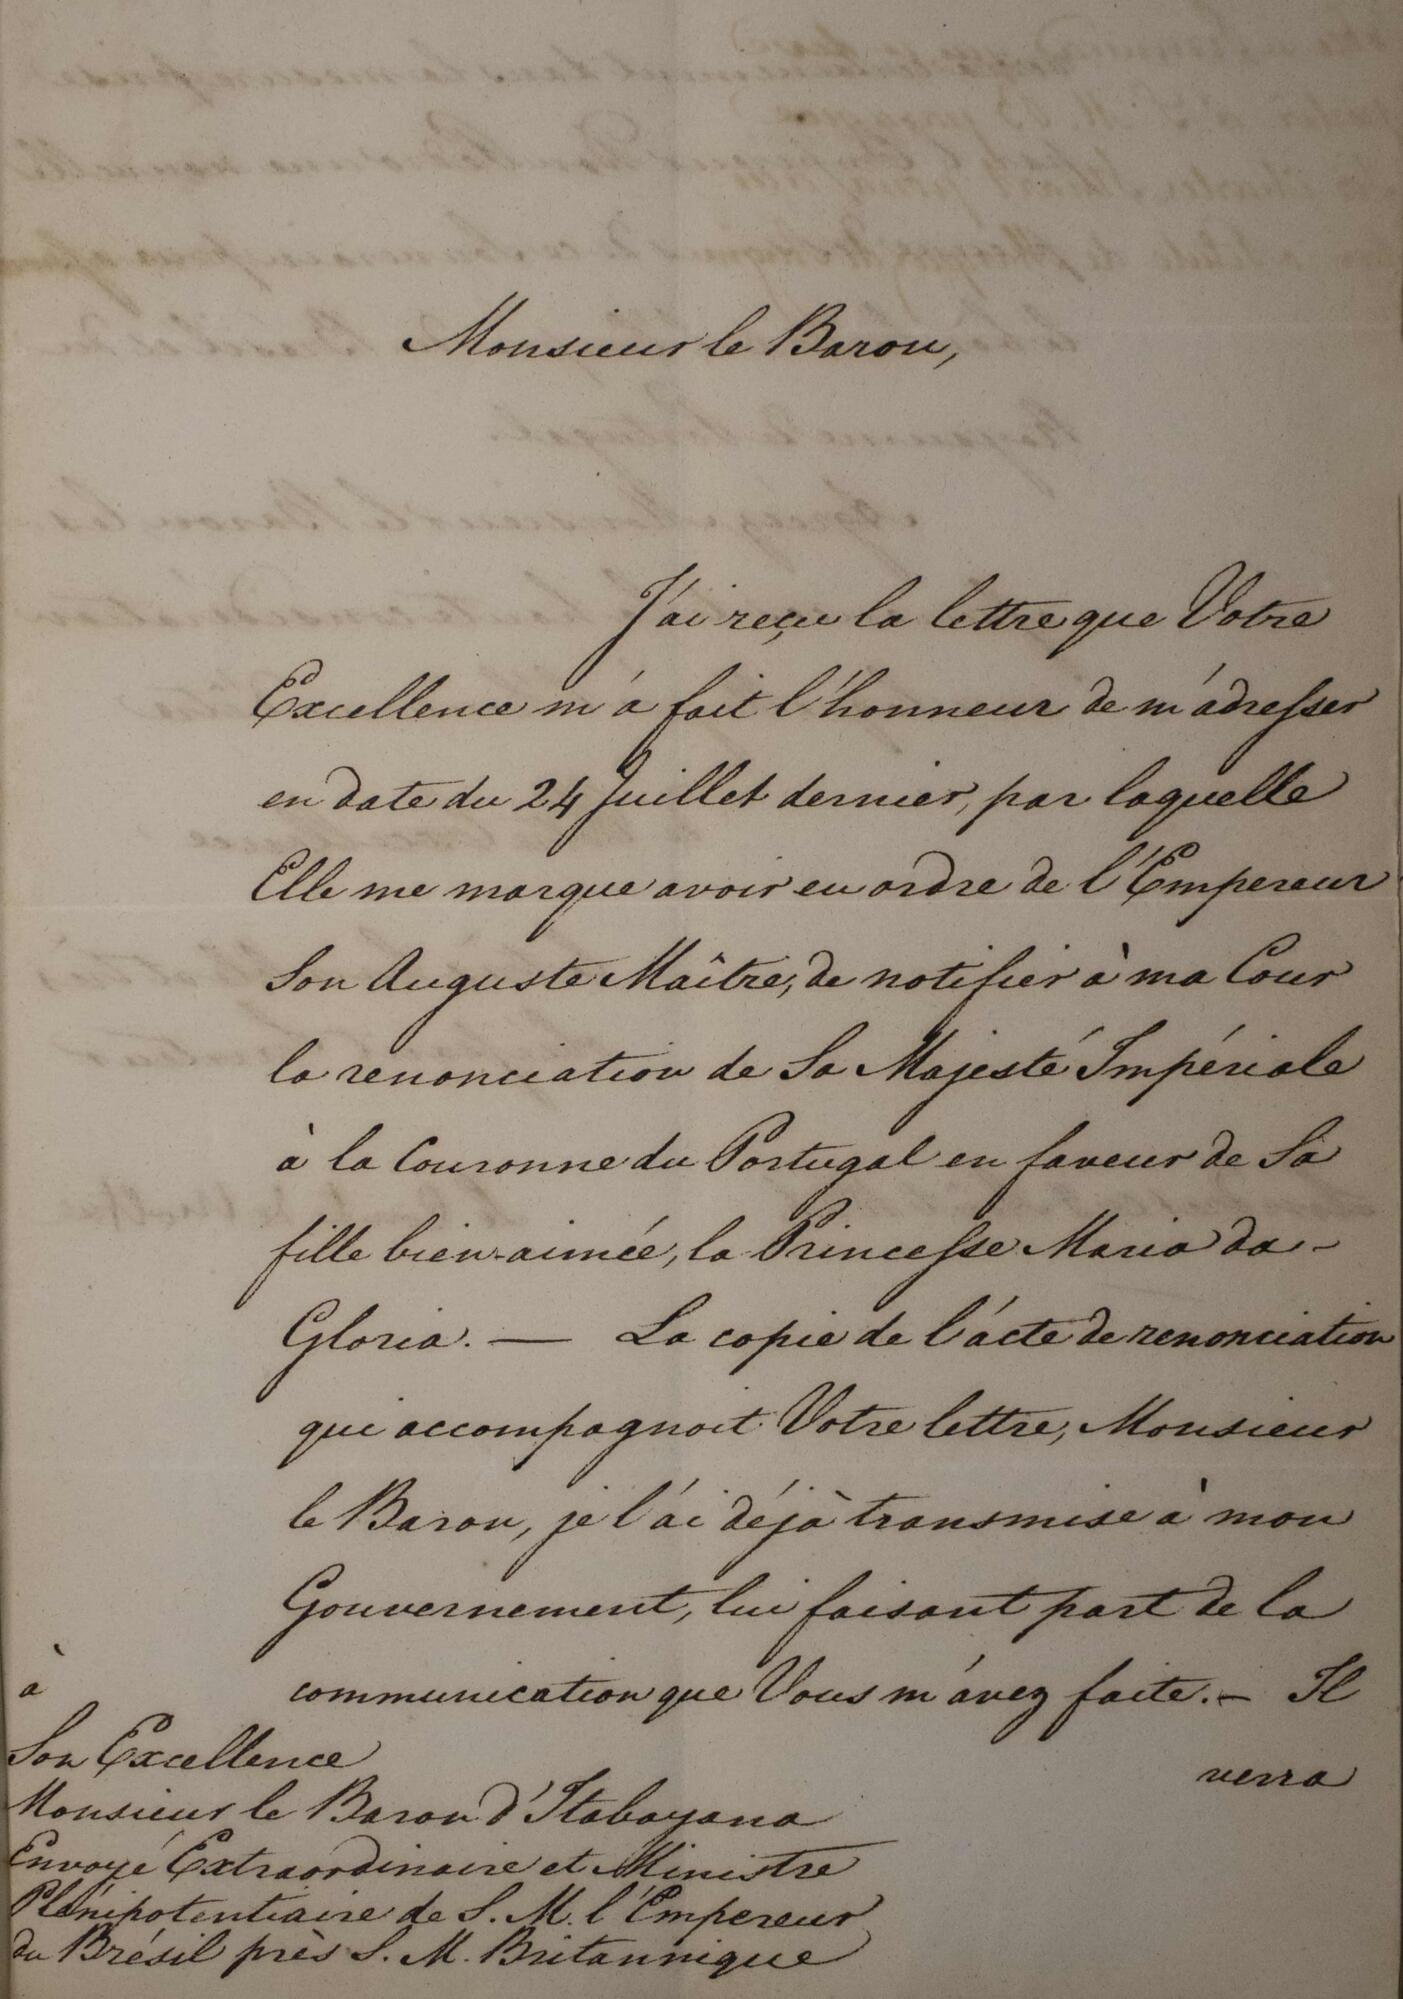 Monsieur le Baron,
J'ai reçu la lettre que Votre
Excellence m'a fait l'honneur de m'adresser
en date du 24 Juillet dernier, par laquelle
Elle me marque avoir eu ordre de l'Empereur
Son Auguste Maître, de notifier à ma Cour
la renonciation de Sa Majesté Impériale
à la Couronne du Portugal en faveur de Sa
fille bien-aimée, la Princesse Maria da-
Gloria. — La copie de l'acte de renonciation
qui accompagnoit Votre lettre, Monsieur
le Baron, je l'ai déjà transmise à mon
Gouvernement, lui faisant part de la
communication que Vous m'avez faite. — Il
verra
à
Son Excellence
Monsieur le Baron d'Itabayana
Envoyé Extraordinaire et Ministre
Plénipotentiaire de S. M. l'Empereur
du Brésil près S. M. Britannique